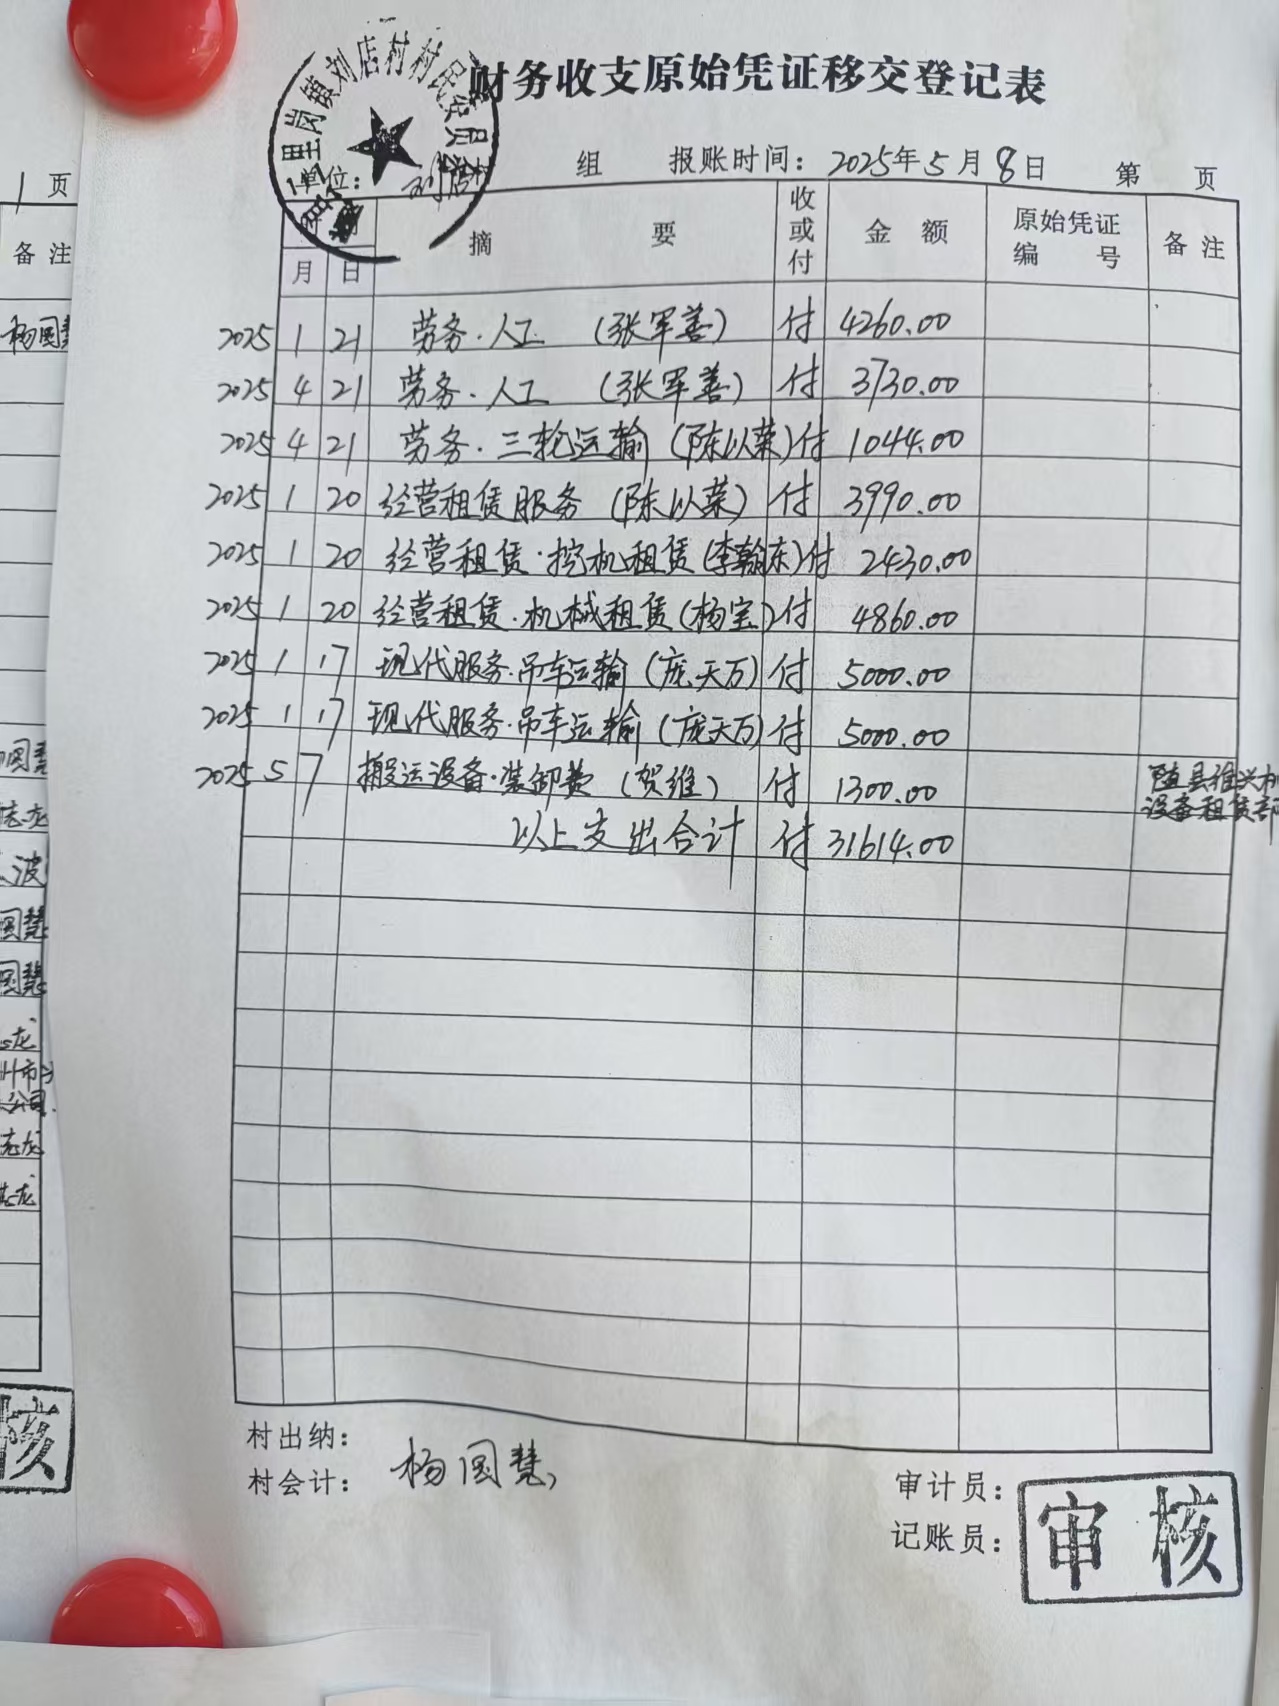 财务收支原始凭证移交登记表
里岗镇刘店村村民委员
单位: 刘店 组 报账时间: 2025年5月8日 第 页
月 日 摘 要 收或付 金 额 原始凭证编 号 备 注
2025 1 21 劳务·人工 (张军善) 付 4260.00
2025 4 21 劳务·人工 (张军善) 付 3730.00
2025 4 21 劳务·三轮运输 (陈以荣) 付 1044.00
2025 1 20 经营租赁服务 (陈以荣) 付 3990.00
2025 1 20 经营租赁·挖机租赁 (李翰东) 付 2430.00
2025 1 20 经营租赁·机械租赁 (杨宝) 付 4860.00
2025 1 17 现代服务·吊车运输 (庞天万) 付 5000.00
2025 1 17 现代服务·吊车运输 (庞天万) 付 5000.00
2025 5 7 搬运设备·装卸费 (贺维) 付 1300.00 随县维兴机
设备租赁部
以上支出合计 付 31614.00
村出纳:
村会计: 杨国慧
审计员:
记账员:
审核
1 页
备 注
杨国慧
国慧
志龙
波
国慧
国慧
龙
州市
公司
志龙
志龙
核